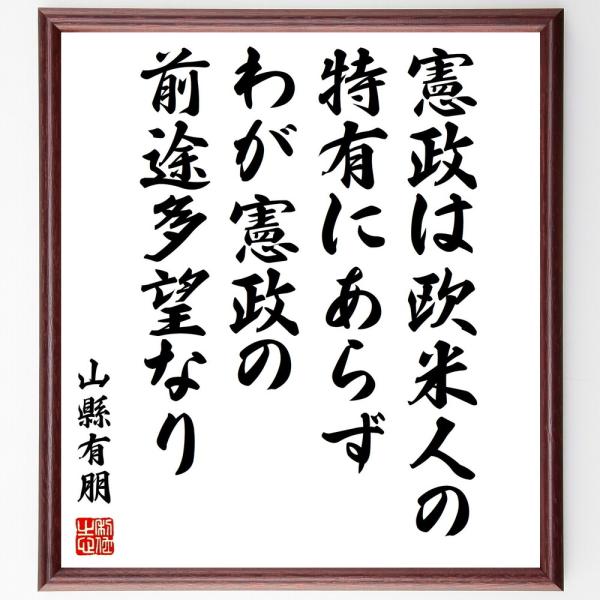 憲政は欧米人の
特有にあらず
わが憲政の
前途多望なり
山縣有朋